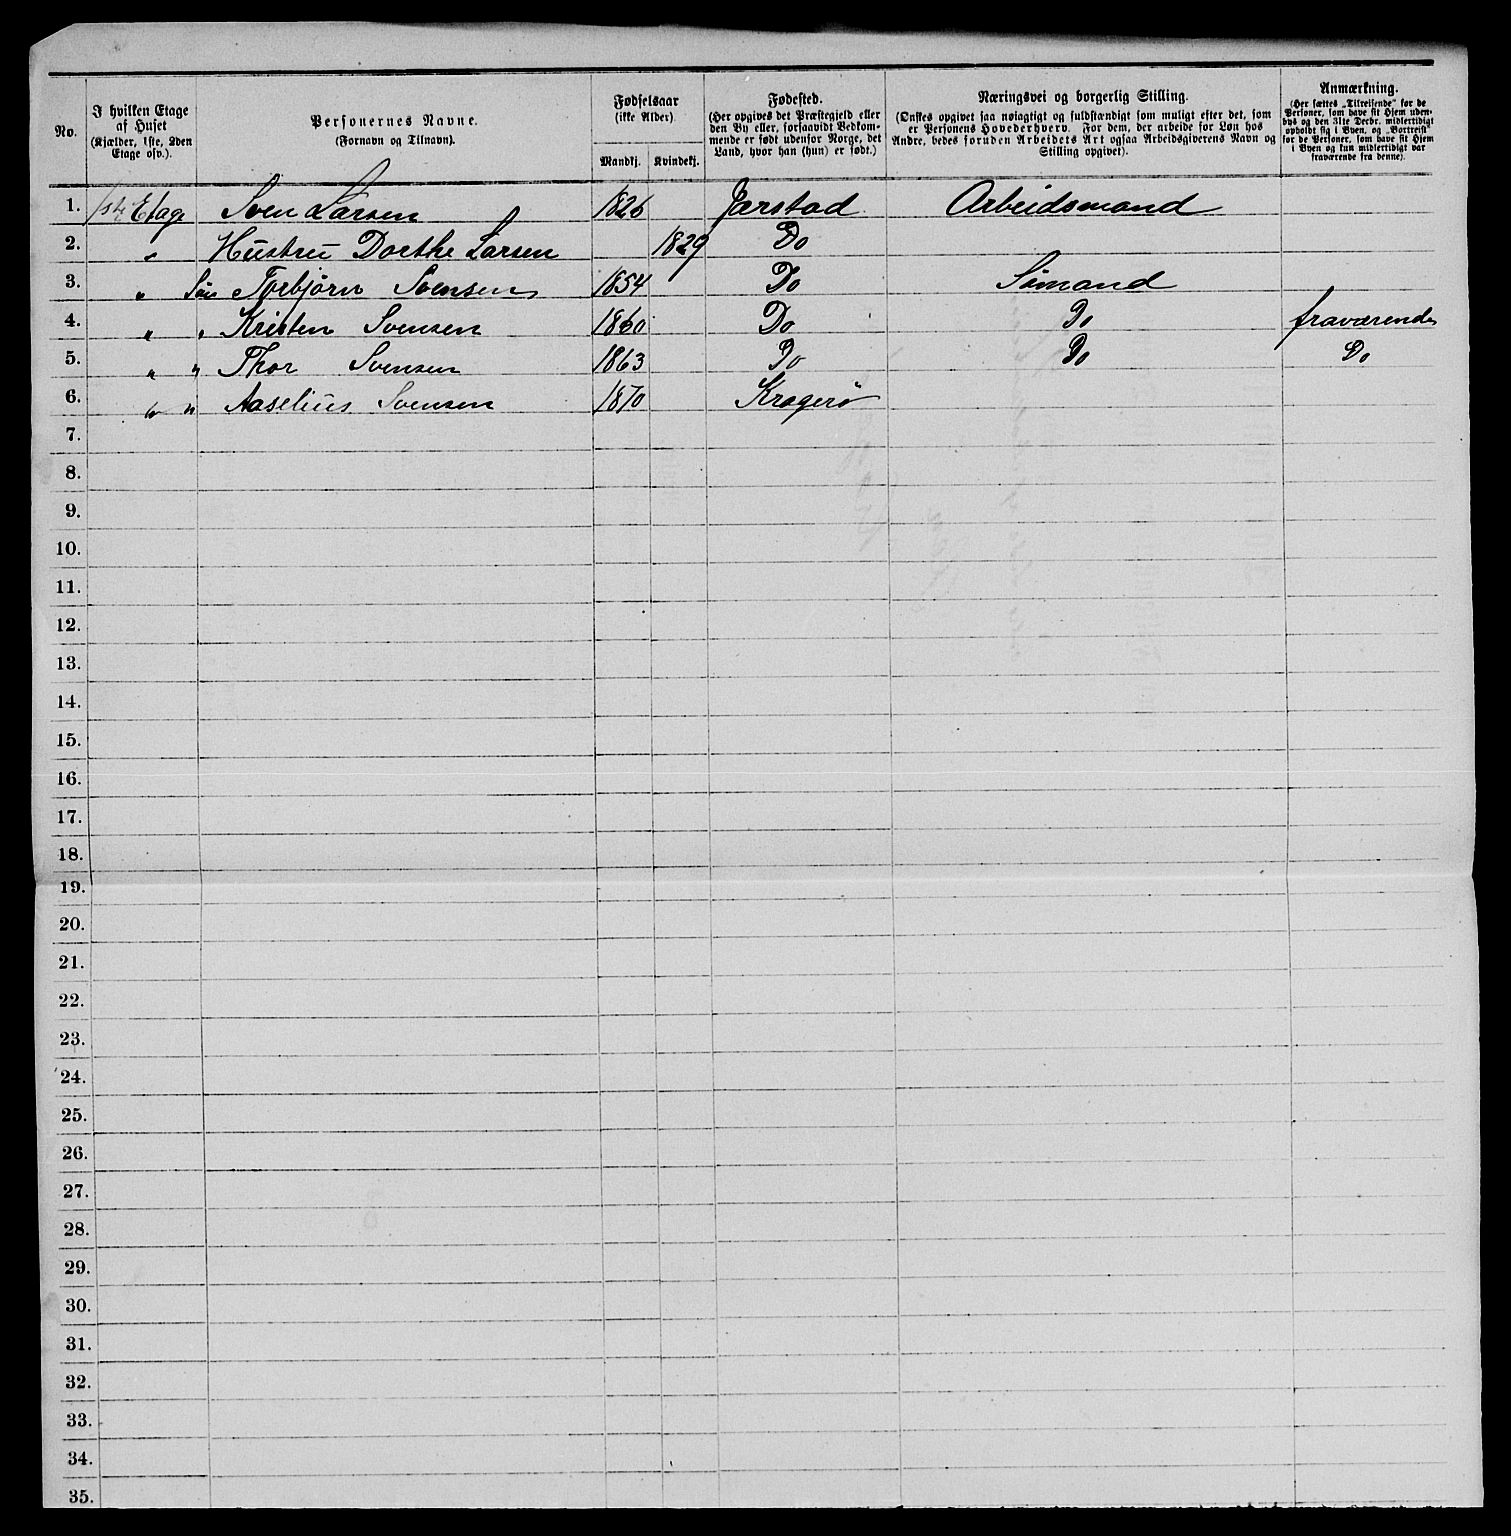 No.
I hvilken Etage
af Huset
(Kjælder, 1ste, 2den
Etage osv.).
Personernes Navne.
(Fornavn og Tilnavn).
Fødselsaar
(ikke Alder)
Mandkj. Kvindekj.
Fødested.
(Her opgives det Præstegjeld eller
den By eller, forsaavidt Bedkom-
mende er født udenfor Norge, det
Land, hvor han (hun) er født.)
Næringsvei og borgerlig Stilling.
(Ønskes opgivet saa nøiagtigt og fuldstændigt som muligt efter det, som
er Personens Hovederhverv. For dem, der arbeide for Løn hos
Andre, bedes foruden Arbeidets Art ogsaa Arbeidsgiverens Navn og
Stilling opgivet).
Anmærkning.
(Her sættes „Tilreisende" for de
Personer, som have sit Hjem uden-
bys og den 31te Decbr. midlertidigt
opholdt sig i Byen, og „Bortreist"
for de Personer, som have sit Hjem
i Byen og kun midlertidigt var
fraværende fra denne).
1. 1ste Etage Sven Larsen 1826 Jærstad Arbeidsmand
2. " Hustru Dorthe Larsen 1829 Do
3. " Søn Torbjørn Svensen 1854 Do Sømand
4. " " Kristen Svensen 1860 Do Do fraværende
5. " " Thor Svensen 1863 Do Do Do
6. " " Aaselius Svensen 1870 Kragerø
7.
8.
9.
10.
11.
12.
13.
14.
15.
16.
17.
18.
19.
20.
21.
22.
23.
24.
25.
26.
27.
28.
29.
30.
31.
32.
33.
34.
35.